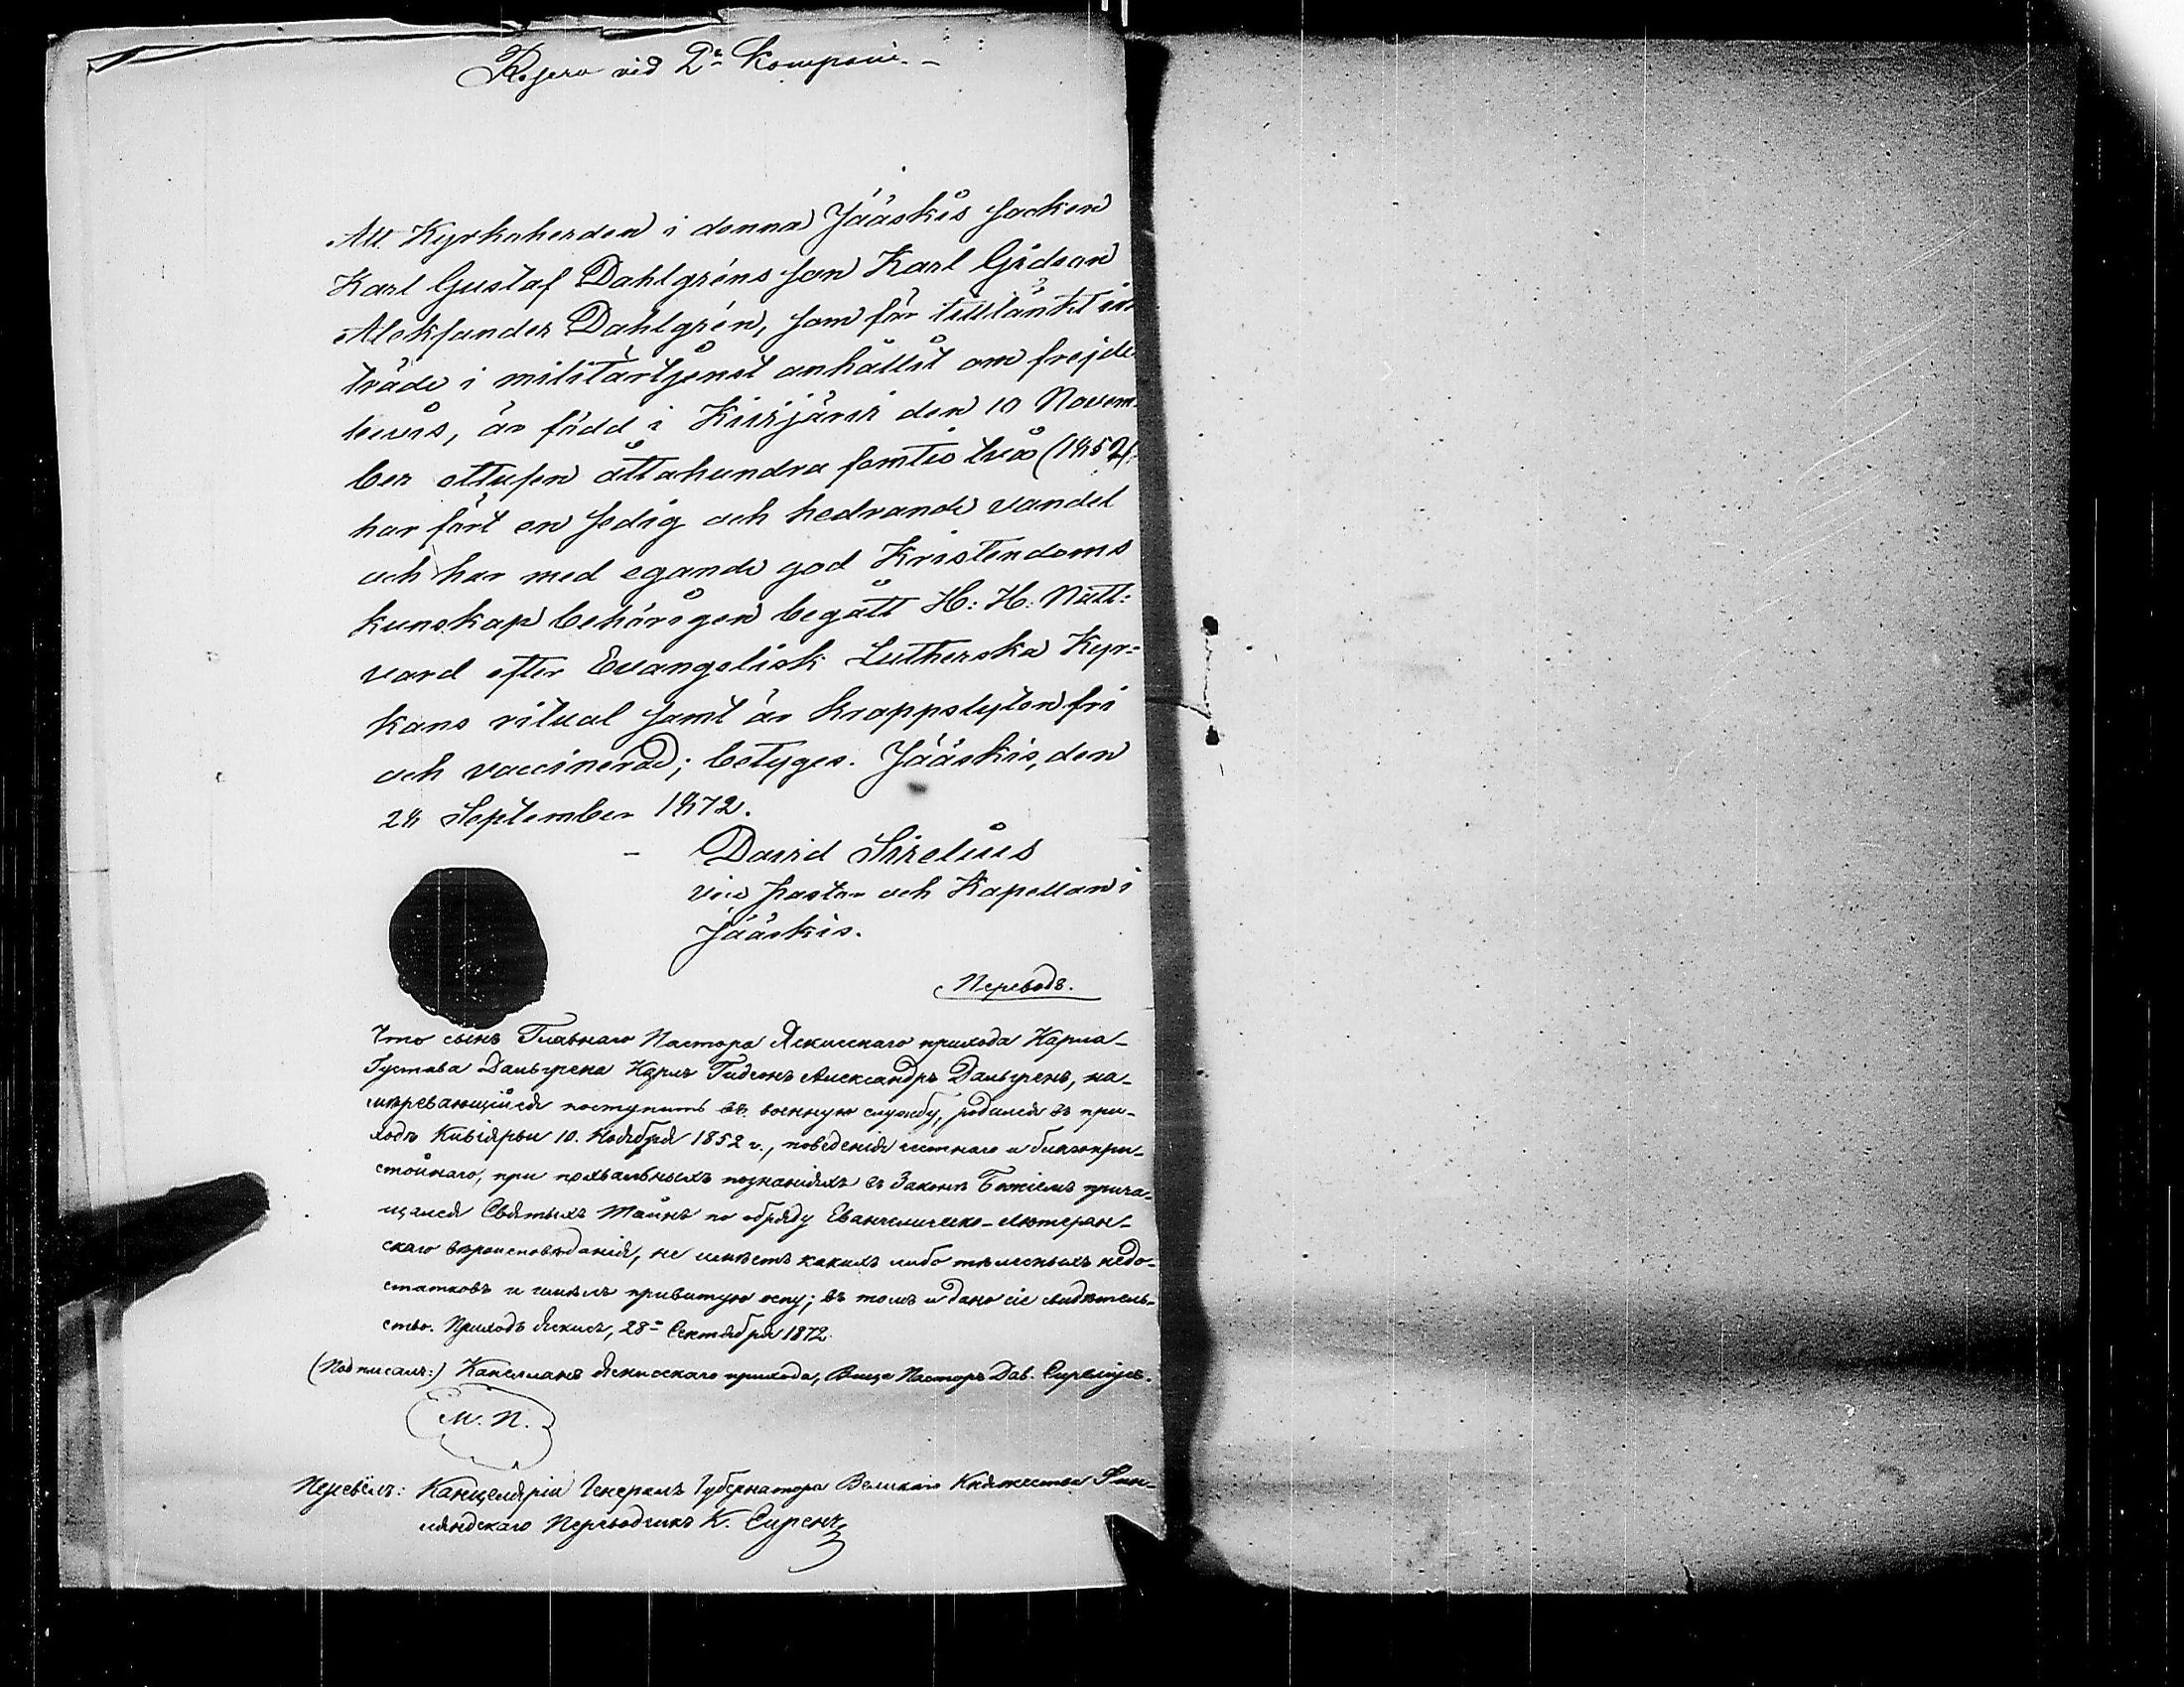 vid 2a Kompani.
Att Kyrkoherden i denna Jääskis Socken
Karl Gustaf Dahlgréns Son Karl Gideon
Aleksander Dahlgrén, som för tilltänkt in
träde i militärtjenst anhållit om frejde
bevis, är född i Kivijärvi den 10 Novem-
ber ettusen åttahundra femtio två (1852)
har fört en sedig och hedrande vandel
och har med egande god Kristendoms
kunskap behörigen begått H: H: Natt:
vard efter Evangelisk Lutherska Kyr=
kans ritual samt är kroppslyten fri
och vaccinerad; betyges. Jääskis, den
28 September 1872.
David Sirelius
Vice pastor och Kapellan i
Jääskis.
Переводъ.
Что сынъ Главнаго Пастора Яскисскаго прихода Карла-
Густава Дальгрена Карлъ Гидеонъ Александръ Дальгренъ, на-
мѣревающійся поступить въ военную службу, родился въ при-
ходѣ Кивіярви 10. Ноября 1852 г., поведенія честнаго и благопри-
стойнаго, при похвальныхъ познаніяхъ въ Законѣ Божіемъ прича-
щался Святыхъ Тайнъ по обряду Евангелическо-Лютеран-
скаго вѣроисповѣданія, не имѣетъ какихъ либо тѣлесныхъ недо-
статковъ и имѣлъ привитую оспу; въ томъ и дано сіе свидѣтель-
ство. Приходъ Яскисъ, 28-го Сентября 1872.
(Подписалъ:) Капелланъ Яскисскаго прихода, Вице Пасторъ Дав. Сирелиусъ.
М. П.
Перевелъ: Канцеляріи Генералъ Губернатора Великаго Княжества Фин-
ляндскаго Переводчикъ К. Сиренъ